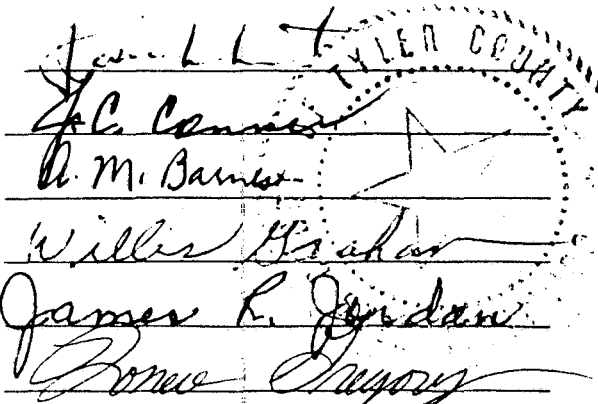 TYLER COUNTY
J. C. Conner
A. M. Barnes
Willis Graham
James R. Jordan
Gregory